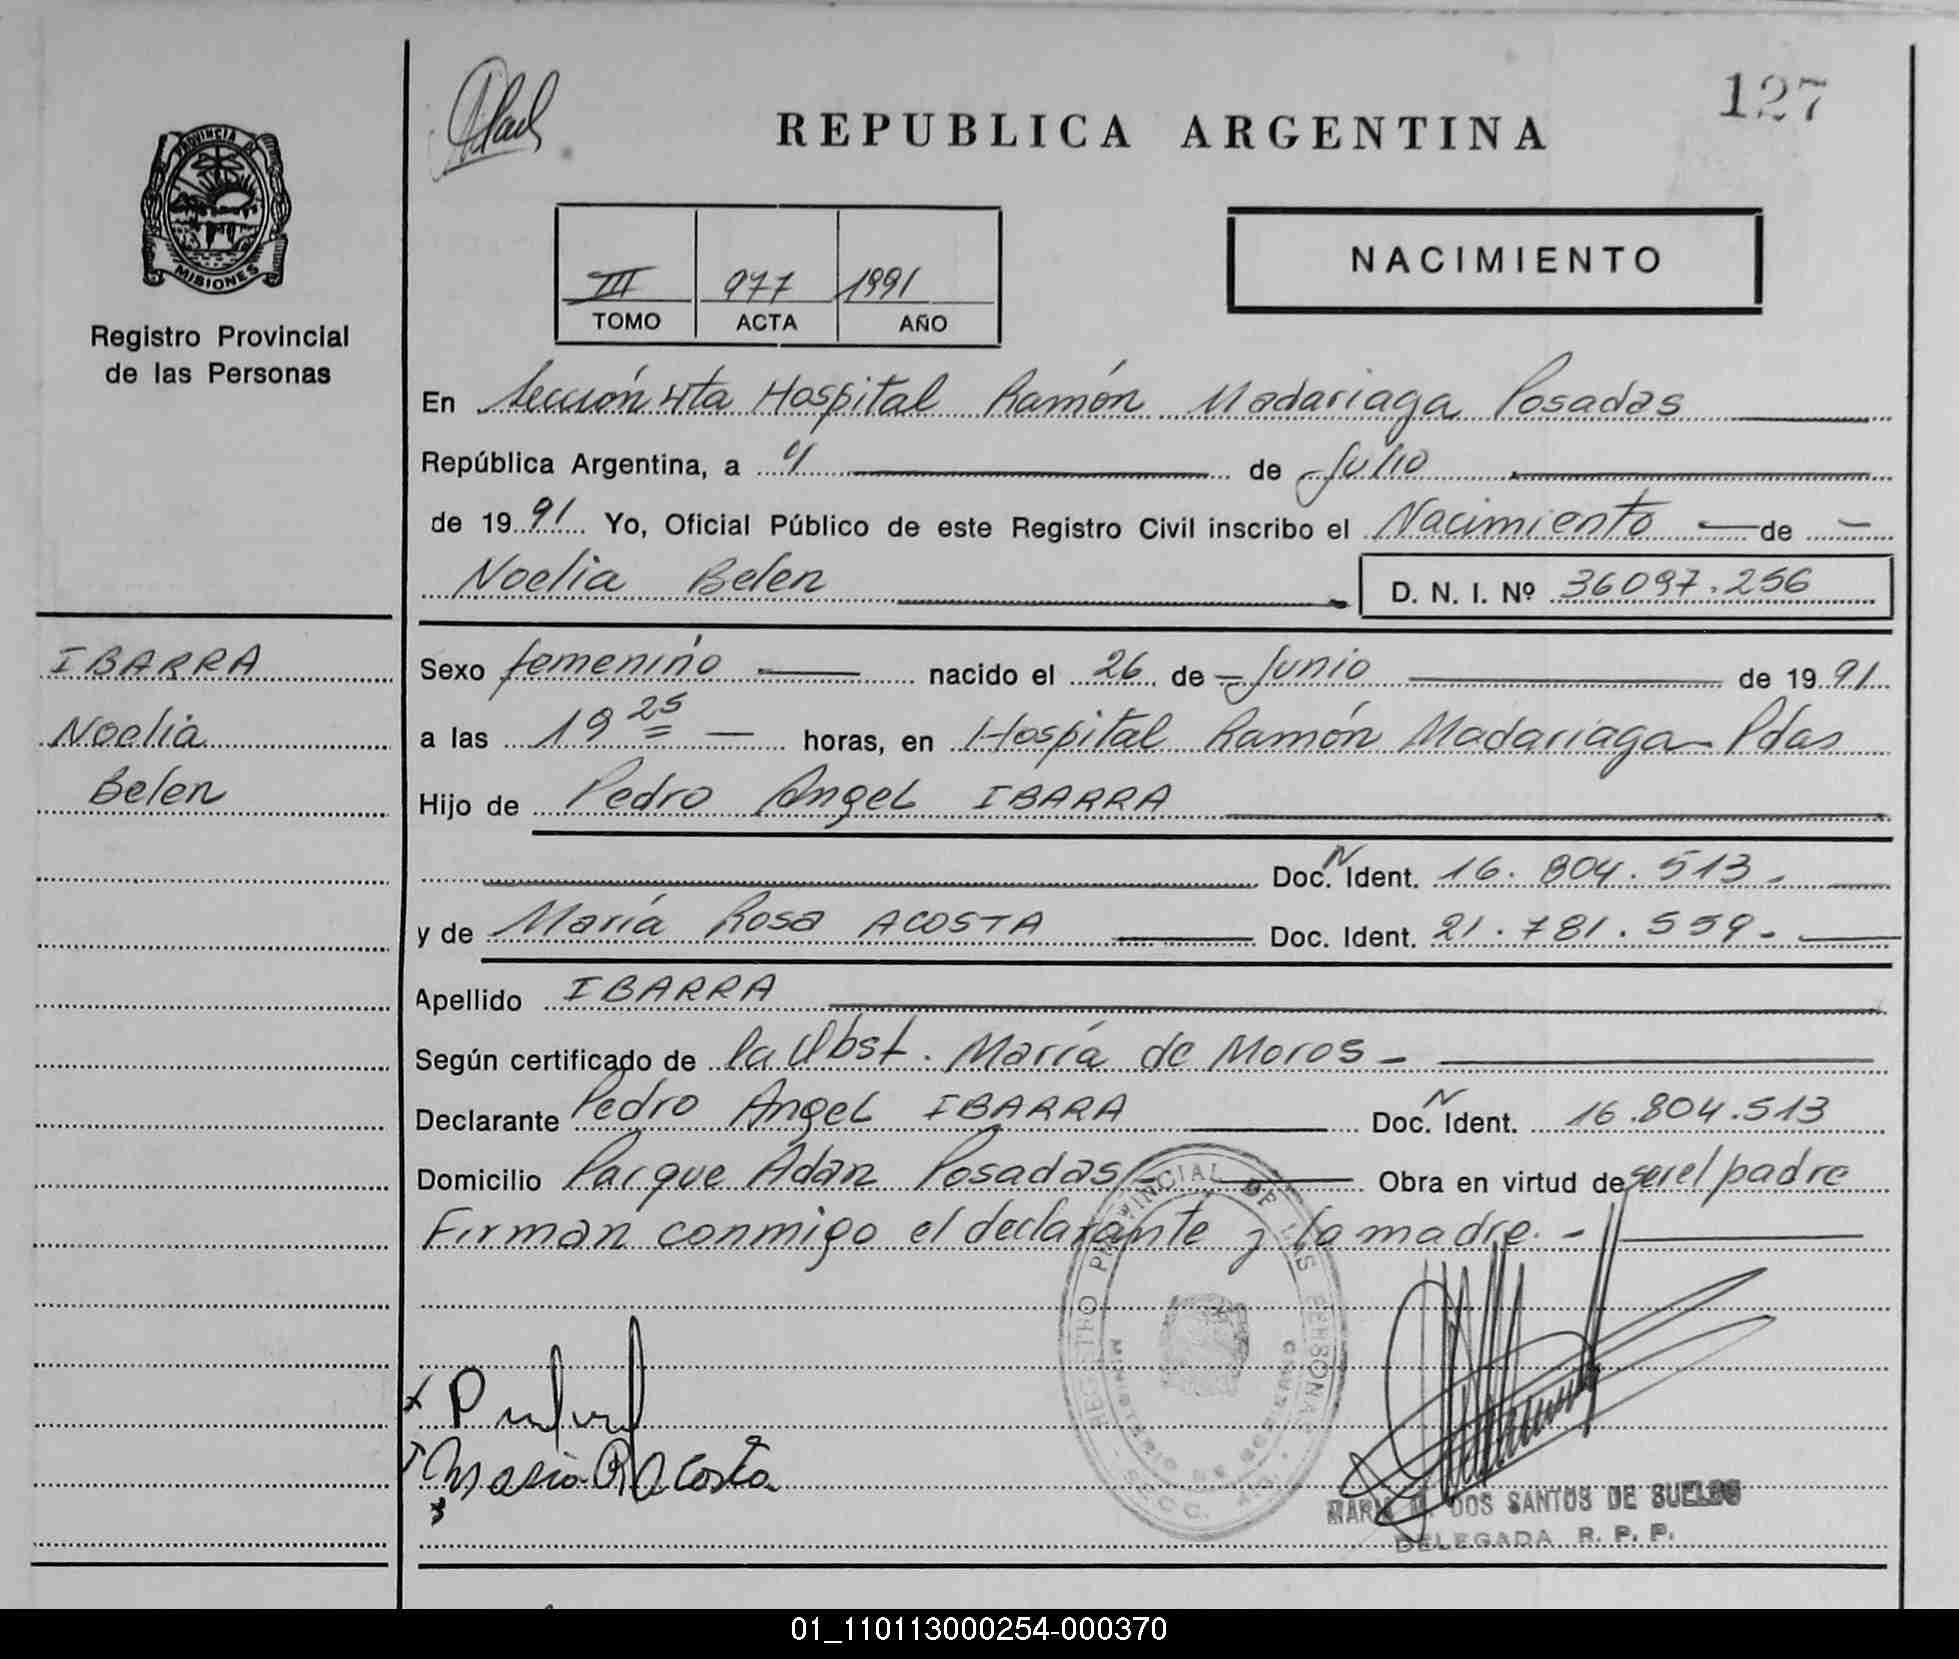 127
REPUBLICA ARGENTINA
PROVINCIA DE
MISIONES
Registro Provincial
de las Personas
III 977 1991
TOMO ACTA AÑO
NACIMIENTO
En Sección 4ta Hospital Ramón Madariaga Posadas
República Argentina, a 4 de Julio
de 1991 Yo, Oficial Público de este Registro Civil inscribo el Nacimiento de
Noelia Belen D. N. I. Nº 36097.256
IBARRA
Noelia
Belen
Sexo femenino nacido el 26 de Junio de 1991
a las 19 25 horas, en Hospital Ramón Madariaga - Pdas
Hijo de Pedro Angel IBARRA
Doc. N Ident. 16.804.513.
y de María Rosa ACOSTA Doc. Ident. 21.781.559.
Apellido IBARRA
Según certificado de la Obst. María de Moros -
Declarante Pedro Angel IBARRA Doc. N Ident. 16.804.513
Domicilio Parque Adan Posadas - Obra en virtud de ser el padre
Firman conmigo el declarante y la madre. -
REGISTRO PROVINCIAL DE LAS PERSONAS
MINISTERIO DE GOBIERNO
Maria R Acosta
MARIA DOS SANTOS DE SUELOS
DELEGADA R. P. P.
01_110113000254-000370